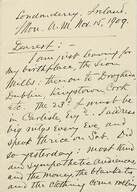 Londonderry, Ireland.
Mon. A.M. Nov. 15, 1909.
Dearest:—
I am just leaving for
my birthplace, the Sion
Mills: thence to Drogheda
Dublin, Queenstown, Cork
etc. The 23rd I must be
in Carlisle, Eng. I address
big mtgs every eve. and
speak thrice on Sab. Did
so yesterday: most kind
and sympathetic audiences
and the money, the blankets
and the clothing come in